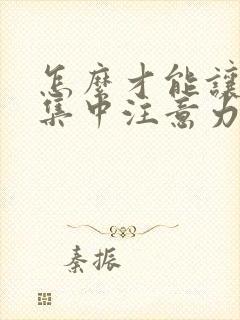 怎麼才能讓
集中注意力
秦振